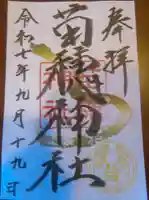 奉拝
苗穂神社
令和七年九月十九日